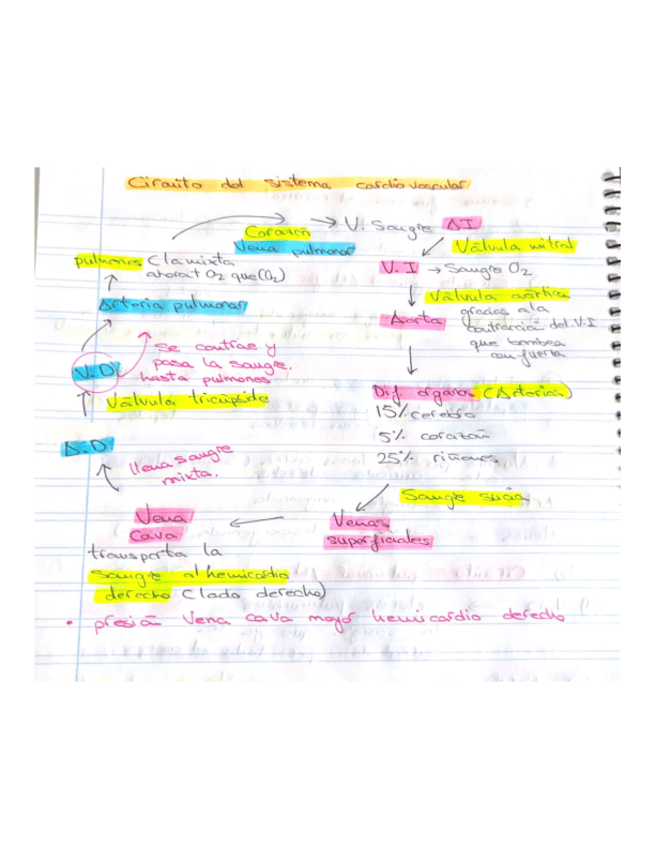 Circuito del sistema cardiovascular
Corazón → V. Sangre AI
Vena pulmonar
Válvula mitral
pulmones (la mixta
ahora + O2 que CO2)
V.I → Sangre O2
Válvula aórtica
Arteria pulmonar
Aorta
gracias a la
contracción del V.I
que bombea
con fuerza
Se contrae y
pasa la sangre.
hasta pulmones
V.D
Válvula tricúspide
Dif. organos (Arterias)
15% cerebro
5% corazón
25% riñones
A.D
llena sangre
mixta.
Sangre sucia
Vena
cava
Venas
superficiales
transporta la
sangre al hemicardio
derecho (lado derecho)
• presión vena cava mayor hemicardio derecho